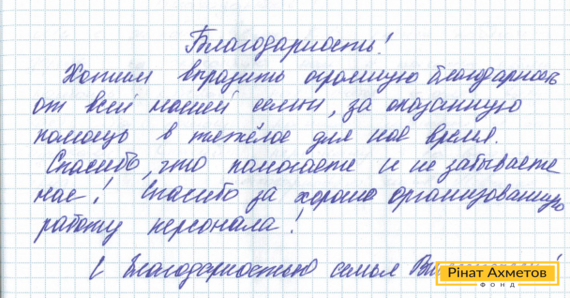 Благодарность!
Хотим выразить огромную благодарность
от всей нашей семьи, за оказанную
помощь в тяжёлое для нас время.
Спасибо, что помогаете и не забываете
нас! Спасибо за хорошо организованную
работу персонала!
С благодарностью семья
Рінат Ахметов
ФОНД